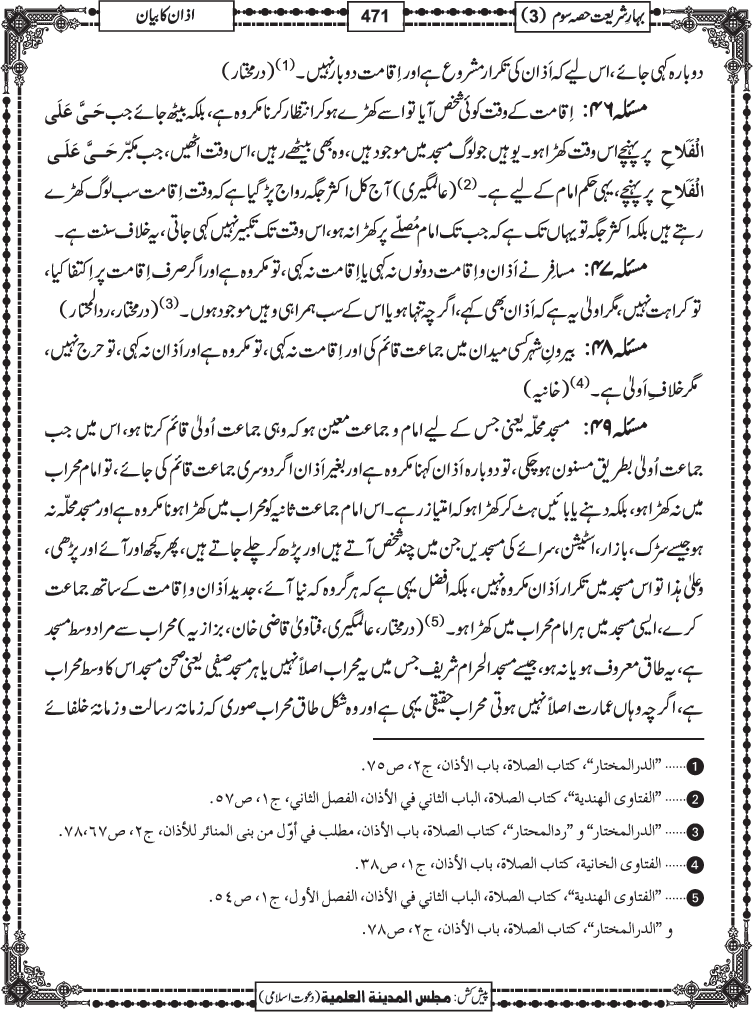 بہارِ شریعت حصہ سوم (3)
471
اذان کا بیان
دوبارہ کہی جائے، اس لیے کہ اَذان کی تکرار مشروع ہے اور اِقامت دوبار نہیں۔(1) (درمختار)
مسئلہ ۴۶: اِقامت کے وقت کوئی شخص آیا تو اسے کھڑے ہو کر انتظار کرنا مکروہ ہے، بلکہ بیٹھ جائے جب حَیَّ عَلَی
الْفَلَاحِ پر پہنچے اس وقت کھڑا ہو۔ یوہیں جو لوگ مسجد میں موجود ہیں، وہ بھی بیٹھے رہیں، اس وقت اٹھیں، جب مکبّر حَیَّ عَلَی
الْفَلَاحِ پر پہنچے، یہی حکم امام کے لیے ہے۔(2) (عالمگیری) آج کل اکثر جگہ رواج پڑ گیا ہے کہ وقت اِقامت سب لوگ کھڑے
رہتے ہیں بلکہ اکثر جگہ تو یہاں تک ہے کہ جب تک امام مُصلّے پر کھڑا نہ ہو، اس وقت تک تکبیر نہیں کہی جاتی، یہ خلاف سنت ہے۔
مسئلہ ۴۷: مسافر نے اَذان و اِقامت دونوں نہ کہی یا اِقامت نہ کہی، تو مکروہ ہے اور اگر صرف اِقامت پر اِکتفا کیا،
تو کراہت نہیں، مگر اولیٰ یہ ہے کہ اَذان بھی کہے، اگرچہ تنہا ہو یا اس کے سب ہمراہی وہیں موجود ہوں۔(3) (درمختار، ردالمحتار)
مسئلہ ۴۸: بیرونِ شہر کسی میدان میں جماعت قائم کی اور اِقامت نہ کہی، تو مکروہ ہے اور اَذان نہ کہی، تو حرج نہیں،
مگر خلافِ اَولیٰ ہے۔(4) (خانیہ)
مسئلہ ۴۹: مسجد محلّہ یعنی جس کے لیے امام و جماعت معین ہو کہ وہی جماعت اُولیٰ قائم کرتا ہو، اس میں جب
جماعت اُولیٰ بطریق مسنون ہو چکی، تو دوبارہ اَذان کہنا مکروہ ہے اور بغیر اَذان اگر دوسری جماعت قائم کی جائے، تو امام محراب
میں نہ کھڑا ہو، بلکہ دہنے یا بائیں ہٹ کر کھڑا ہو کہ امتیاز رہے۔ اس امام جماعت ثانیہ کو محراب میں کھڑا ہونا مکروہ ہے اور مسجد محلّہ نہ
ہو جیسے سڑک، بازار، اسٹیشن، سرائے کی مسجدیں جن میں چند شخص آتے ہیں اور پڑھ کر چلے جاتے ہیں، پھر کچھ اور آئے اور پڑھی،
وعلیٰ ہذا تو اس مسجد میں تکرار اَذان مکروہ نہیں، بلکہ افضل یہی ہے کہ ہر گروہ کہ نیا آئے، جدید اَذان و اِقامت کے ساتھ جماعت
کرے، ایسی مسجد میں ہر امام محراب میں کھڑا ہو۔(5) (درمختار، عالمگیری، فتاویٰ قاضی خان، بزازیہ) محراب سے مراد وسط مسجد
ہے، یہ طاق معروف ہو یا نہ ہو، جیسے مسجد الحرام شریف جس میں یہ محراب اصلاً نہیں یا ہر مسجد صیفی یعنی صحن مسجد اس کا وسط محراب
ہے، اگرچہ وہاں عمارت اصلاً نہیں ہوتی محراب حقیقی یہی ہے اور وہ شکل طاق محراب صوری کہ زمانۂ رسالت و زمانۂ خلفائے
1 ...... ”الدرالمختار“، کتاب الصلاۃ، باب الأذان، ج۲، ص۷۵.
2 ...... ”الفتاوی الهندیة“، کتاب الصلاة، الباب الثاني في الأذان، الفصل الثاني، ج۱، ص۵۷.
3 ...... ”الدرالمختار“ و ”ردالمحتار“، کتاب الصلاة، باب الأذان، مطلب في أوّل من بنی المنائر للأذان، ج۲، ص۶۷،۷۸.
4 ...... الفتاوی الخانیة، کتاب الصلاة، باب الأذان، ج۱، ص۳۸.
5 ...... ”الفتاوی الهندیة“، کتاب الصلاة، الباب الثاني في الأذان، الفصل الأول، ج۱، ص۵٤.
و ”الدرالمختار“، کتاب الصلاة، باب الأذان، ج۲، ص۷۸.
پیش کش: مجلس المدینة العلمیة (دعوت اسلامی)